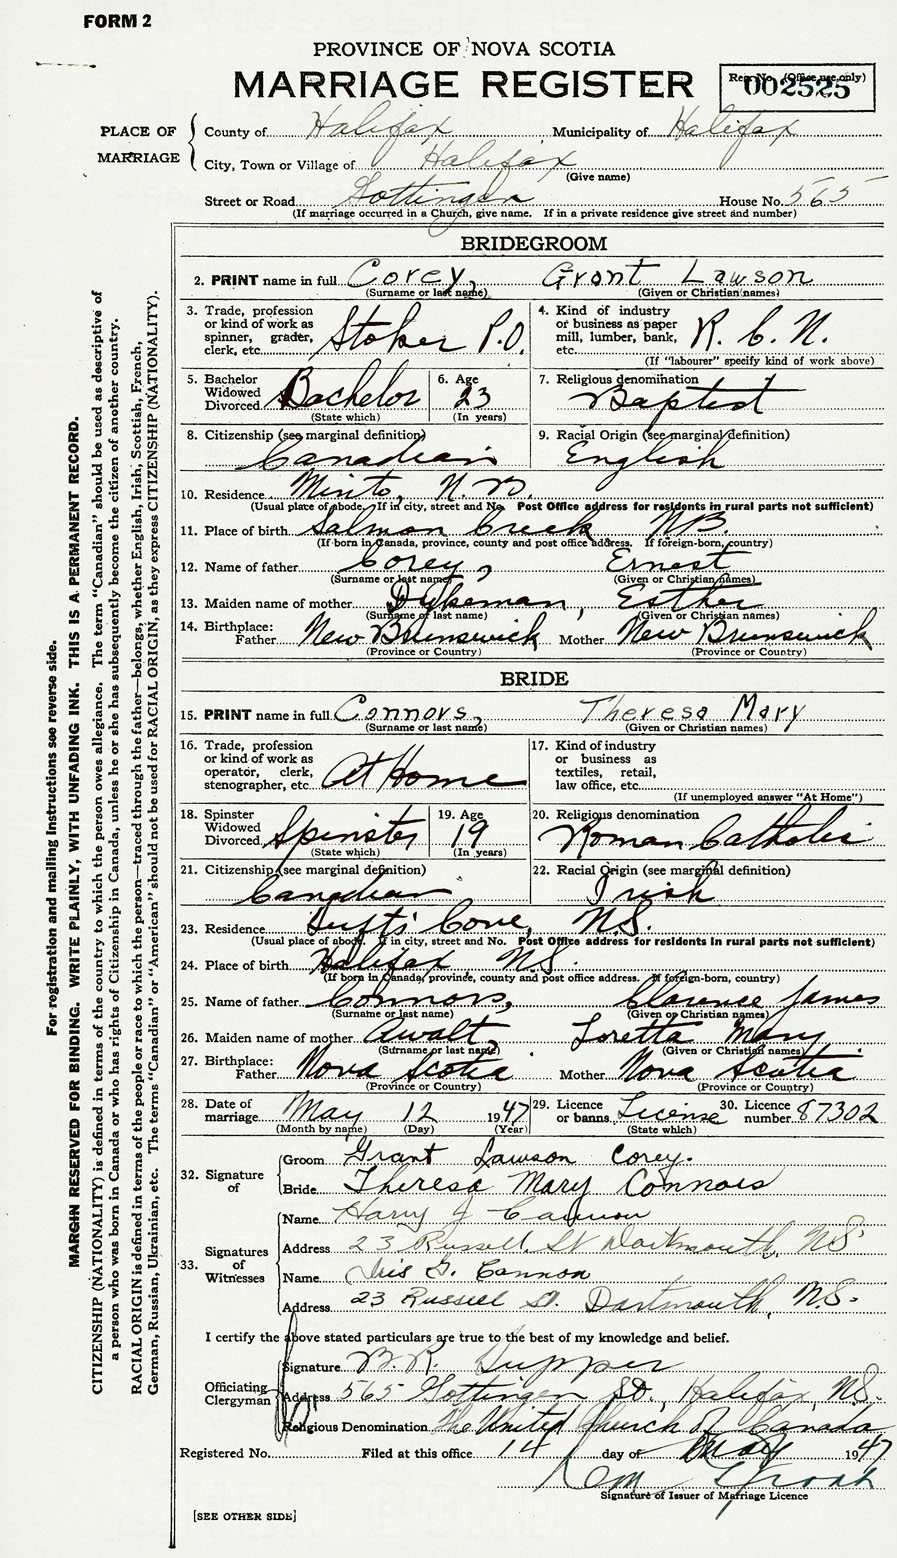 FORM 2
PROVINCE OF NOVA SCOTIA
MARRIAGE REGISTER
Reg. No. (Office use only)
002525
PLACE OF MARRIAGE
County of Halifax Municipality of Halifax
City, Town or Village of Halifax
(Give name)
Street or Road Gottingen House No. 565
(If marriage occurred in a Church, give name. If in a private residence give street and number)
BRIDEGROOM
2. PRINT name in full Corey, Grant Lawson
(Surname or last name) (Given or Christian names)
3. Trade, profession or kind of work as spinner, grader, clerk, etc. Stoker P.O.
4. Kind of industry or business as paper mill, lumber, bank, etc. R.C.N.
(If "labourer" specify kind of work above)
5. Bachelor Widowed Divorced Bachelor
(State which)
6. Age 23
(In years)
7. Religious denomination
Baptist
8. Citizenship (see marginal definition)
Canadian
9. Racial Origin (see marginal definition)
English
10. Residence Minto, N.B.
(Usual place of abode. If in city, street and No. Post Office address for residents in rural parts not sufficient)
11. Place of birth Salmon Creek N.B.
(If born in Canada, province, county and post office address. If foreign-born, country)
12. Name of father Corey, Ernest
(Surname or last name) (Given or Christian names)
13. Maiden name of mother Dykeman, Esther
(Surname or last name) (Given or Christian names)
14. Birthplace: Father New Brunswick Mother New Brunswick
(Province or Country) (Province or Country)
BRIDE
15. PRINT name in full Connors, Theresa Mary
(Surname or last name) (Given or Christian names)
16. Trade, profession or kind of work as operator, clerk, stenographer, etc. At Home
17. Kind of industry or business as textiles, retail, law office, etc.
(If unemployed answer "At Home")
18. Spinster Widowed Divorced Spinster
(State which)
19. Age 19
(In years)
20. Religious denomination
Roman Catholic
21. Citizenship (see marginal definition)
Canadian
22. Racial Origin (see marginal definition)
Irish
23. Residence Tufts Cove, N.S.
(Usual place of abode. If in city, street and No. Post Office address for residents in rural parts not sufficient)
24. Place of birth Halifax N.S.
(If born in Canada, province, county and post office address. If foreign-born, country)
25. Name of father Connors, Clarence James
(Surname or last name) (Given or Christian names)
26. Maiden name of mother Awalt, Loretta Mary
(Surname or last name) (Given or Christian names)
27. Birthplace: Father Nova Scotia Mother Nova Scotia
(Province or Country) (Province or Country)
28. Date of marriage May 12 1947
(Month by name) (Day) (Year)
29. Licence or banns License
(State which)
30. Licence number 87302
32. Signature of
Groom Grant Lawson Corey.
Bride Theresa Mary Connors
33. Signatures of Witnesses
Name Harry J Cannon
Address 23 Russell St Dartmouth, N.S.
Name Iris G. Cannon
Address 23 Russell St. Dartmouth, N.S.
I certify the above stated particulars are true to the best of my knowledge and belief.
Officiating Clergyman
Signature B.R. Tupper
Address 565 Gottingen St., Halifax, N.S.
Religious Denomination The United Church of Canada
Registered No. Filed at this office 14 day of May 1947
Signature of Issuer of Marriage Licence
[SEE OTHER SIDE]
For registration and mailing instructions see reverse side.
MARGIN RESERVED FOR BINDING. WRITE PLAINLY, WITH UNFADING INK. THIS IS A PERMANENT RECORD.
CITIZENSHIP (NATIONALITY) is defined in terms of the country to which the person owes allegiance. The term "Canadian" should be used as descriptive of
a person who was born in Canada or who has rights of Citizenship in Canada, unless he or she has subsequently become the citizen of another country.
RACIAL ORIGIN is defined in terms of the people or race to which the person—traced through the father—belongs, whether English, Irish, Scottish, French,
German, Russian, Ukrainian, etc. The terms "Canadian" or "American" should not be used for RACIAL ORIGIN, as they express CITIZENSHIP (NATIONALITY).